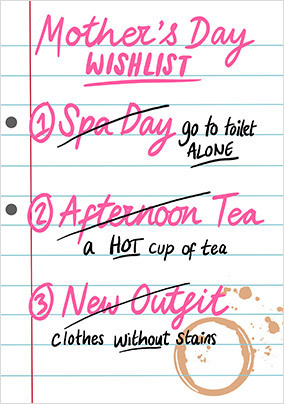 Mother's Day
WISHLIST
① Spa Day go to toilet
ALONE
② Afternoon Tea
a HOT cup of tea
③ New Outfit
clothes without stains